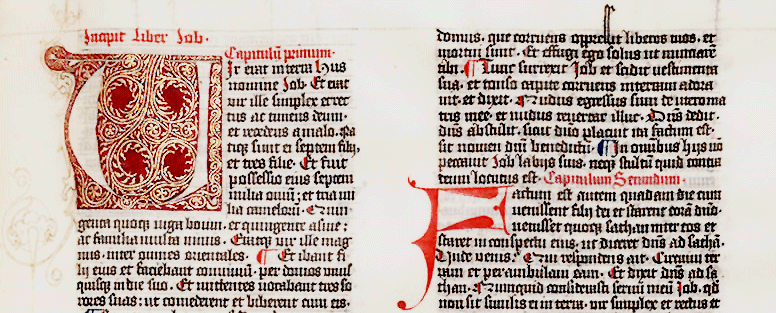 Incipit Liber Job.
Capitulū primum.
Ir erat in terra hus
nomine Job. Et erat
vir ille simplex et rec
tus ac timens deum:
et recedens a malo. Na
tiq; sunt ei septem filij,
et tres filie. Et fuit
possessio eius septem
milia oviū; et tria mi
lia camelorū. Quin-
genta quoq; iuga boum. et quingente asine:
ac familia multa nimis. Eratq; vir ille mag
nus. inter omnes orientales. Et ibant fi
lij eius et faciebant conviviū. per domos unus
quisq; in die suo. Et mittentes vocabant tres so
rores suas: ut comederent et biberent cum eis.
domus. que corruens oppressit liberos tuos. et
mortui sunt. Et effugi ego solus ut nunciarē
tibi. Tunc surrexit Job et scidit vestimenta
sua. et tonso capite corruens in terram adora
vit. et dixit. Nudus egressus sum de utero ma
tris mee. et nudus revertar illuc. Dn̄s dedit.
dn̄s abstulit. sicut dn̄o placuit ita factum est.
sit nomen dn̄i benedictū. In omībus hijs nō
peccavit Job labijs suis. neq; stultū quid contra
deum locutus est. Capitulum Secundum.
actum est autem quadam die cum
venissent filij dei et starent corā dn̄o.
venisset quoq; sathan inter eos et
staret in conspectu eius. ut diceret dn̄s ad sathā.
Unde venis? Qui respondens ait. Circuivi ter
ram et perambulavi eam. Et dixit dn̄s ad sa
than. Nunquid considerasti servū meū Job. qd
non sit similis ei in terra. vir simplex et rectus et